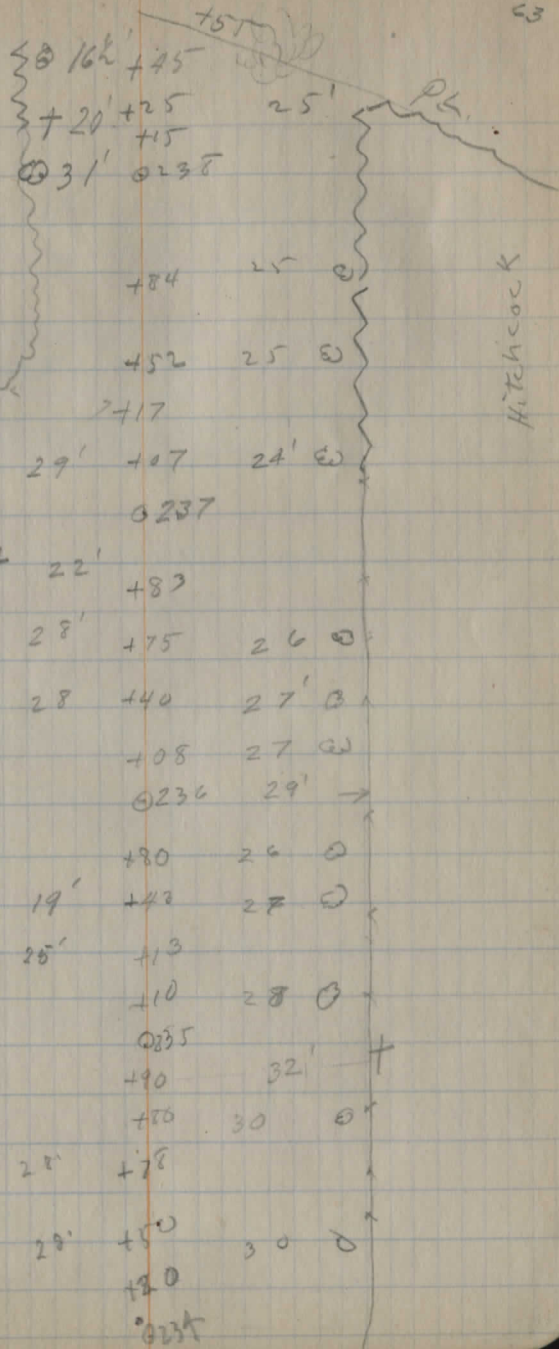 63
+51
16½' +45
+20' +25 25' Pk.
+15
31' 238
+84 25
Hitchcock
+52 25
+17
29' +07 24'
237
22' +83
28' +75 26
28 +40 27'
+08 27
236 29'
+80 26
19' 27
25' +13
+10 28
235
+90 32'
30
28 +78
28' +50 30
+20